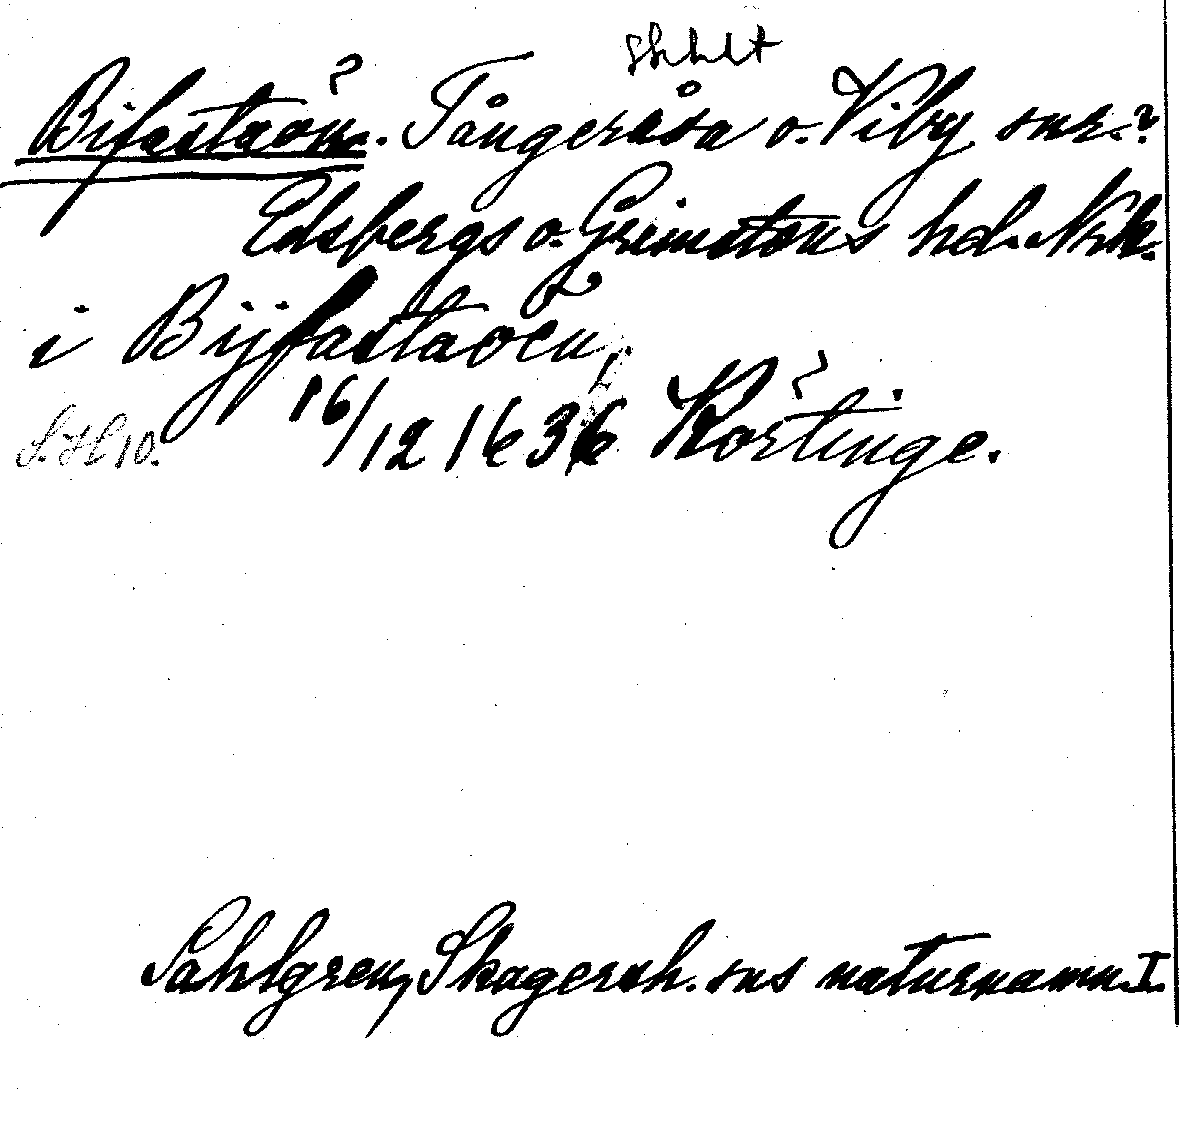 Bifastaön. Tångeråsa o. Viby snr.?
Edsbergs o. Grimstens hd. Nrk.
i Bijfastaöen,
16/12 1636 Körtinge.
Sahlgren, Skagersh. sns naturnamn I.